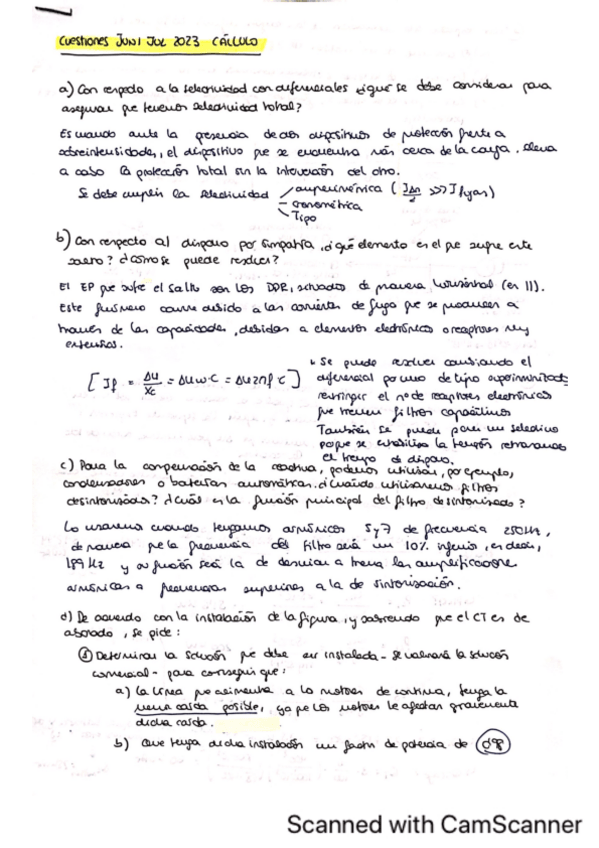 Cuestiones JUNI JUL 2023 CÁLCULO
a) Con respecto a la selectividad con diferenciales ¿qué se debe considerar para
asegurar que tenemos selectividad total?
Es cuando ante la presencia de dos dispositivos de protección frente a
sobreintensidades, el dispositivo que se encuentra más cerca de la carga. lleva
a cabo la protección total sin la intervención del otro.
Se debe cumplir la selectividad amperimétrica ( IΔn/2 >>> I fugas)
cronométrica
Tipo
b) Con respecto al disparo por simpatía, ¿qué elemento es el que sufre este
? ¿Cómo se puede resolver?
El EP que sufre el salto son los DDR, de manera horizontal (en II).
Este fenómeno ocurre debido a las corrientes de fuga que se producen a
través de las capacidades, debidas a elementos electrónicos o receptores muy
extensos.
[ If = ΔU/Xc = ΔU·ω·C = ΔU2πfC ]
Se puede resolver cambiando el
diferencial por uno de tipo superinmunizado
restringir el nº de receptores electrónicos
que tienen filtros capacitivos
También se puede poner un selectivo
porque se la tensión retrasamos
el tiempo de disparo.
c) Para la compensación de la reactiva, podemos utilizar, por ejemplo,
condensadores o baterías automáticas. ¿Cuándo utilizaremos filtros
desintonizados? ¿Cuál es la función principal del filtro desintonizado?
Lo usaremos cuando tengamos armónicos 5 y 7 de frecuencia 250Hz,
de manera que la frecuencia del filtro será un 10% inferior, es decir,
189 Hz y su función será la de derivar a tierra las amplificaciones
armónicas a frecuencias superiores a la de sintonización.
d) De acuerdo con la instalación de la figura, y sabiendo que el CT es de
abonado, se pide:
Determinar la solución que debe ser instalada - se valorará la solución
comercial - para conseguir que:
a) La línea que alimenta a los motores de continua, tenga la
menor caída posible, ya que los motores le afectan gravemente
dicha caída.
b) Que tenga dicha instalación un factor de potencia de 0'98
Scanned with CamScanner